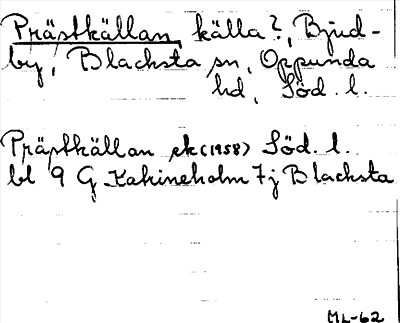 Prästkällan, källa?, Bjud-
by, Blacksta sn, Oppunda
hd, Söd. l.
Prästkällan ek (1958) Söd. l.
bl 9 G Katrineholm 7j Blacksta
ML-62